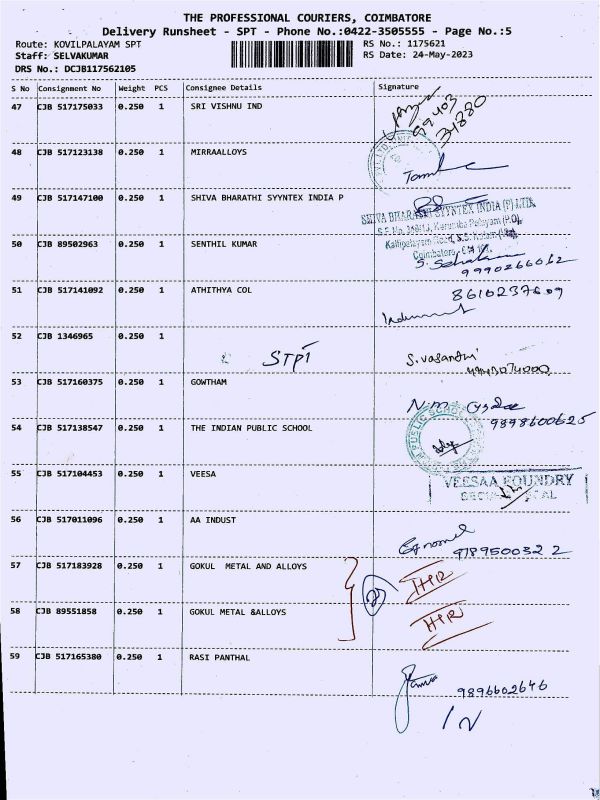 THE PROFESSIONAL COURIERS, COIMBATORE
Delivery Runsheet - SPT - Phone No.:0422-3505555 - Page No.:5
Route: KOVILPALAYAM SPT
RS No.: 1175621
Staff: SELVAKUMAR
RS Date: 24-May-2023
DRS No.: DCJB117562105
S No Consignment No Weight PCS Consignee Details Signature
47 CJB 517175033 0.250 1 SRI VISHNU IND
99403
31880
48 CJB 517123138 0.250 1 MIRRAALLOYS
49 CJB 517147100 0.250 1 SHIVA BHARATHI SYYNTEX INDIA P
SHIVA BHARATHI SYYNTEX INDIA (P) LTD.
50 CJB 89502963 0.250 1 SENTHIL KUMAR
Coimbatore
9990266062
51 CJB 517141092 0.250 1 ATHITHYA COL
52 CJB 1346965 0.250 1
STP1
S. Vasanthi
53 CJB 517160375 0.250 1 GOWTHAM
9898600625
54 CJB 517138547 0.250 1 THE INDIAN PUBLIC SCHOOL
PUBLIC SCHOOL
55 CJB 517104453 0.250 1 VEESA
VEESAA FOUNDRY
56 CJB 517011096 0.250 1 AA INDUST
57 CJB 517183928 0.250 1 GOKUL METAL AND ALLOYS
58 CJB 89551858 0.250 1 GOKUL METAL &ALLOYS
59 CJB 517165380 0.250 1 RASI PANTHAL
9896602646